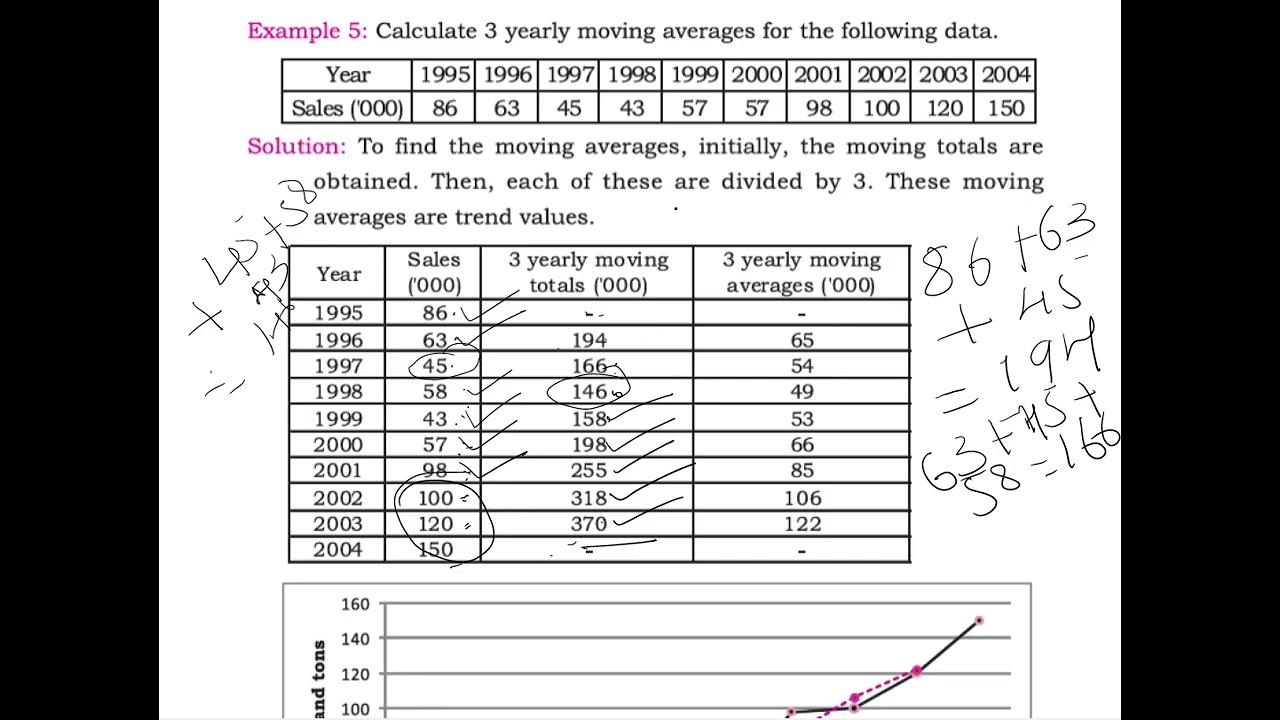 Example 5: Calculate 3 yearly moving averages for the following data.
Year 1995 1996 1997 1998 1999 2000 2001 2002 2003 2004
Sales ('000) 86 63 45 43 57 57 98 100 120 150
Solution: To find the moving averages, initially, the moving totals are
obtained. Then, each of these are divided by 3. These moving
averages are trend values.
Year Sales ('000) 3 yearly moving totals ('000) 3 yearly moving averages ('000)
1995 86 - -
1996 63 194 65
1997 45 166 54
1998 58 146 49
1999 43 158 53
2000 57 198 66
2001 98 255 85
2002 100 318 106
2003 120 370 122
2004 150 - -
86 +63
+ 45
= 194
63 + 45 +
58 = 166
45 + 58
+ 43
=
160
140
120
100
and tons